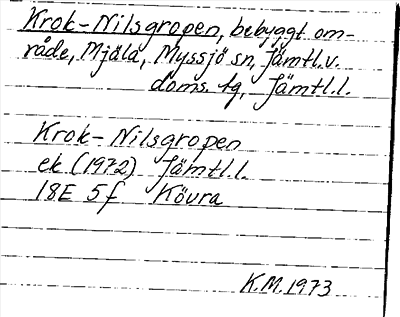 Krok-Nilsgropen, bebyggt om-
råde, Mjäla, Myssjö sn, Jämtl.v.
doms. tg, Jämtl.l.
Krok-Nilsgropen
ek (1972) Jämtl.l.
18E 5f Kövra
K.M. 1973